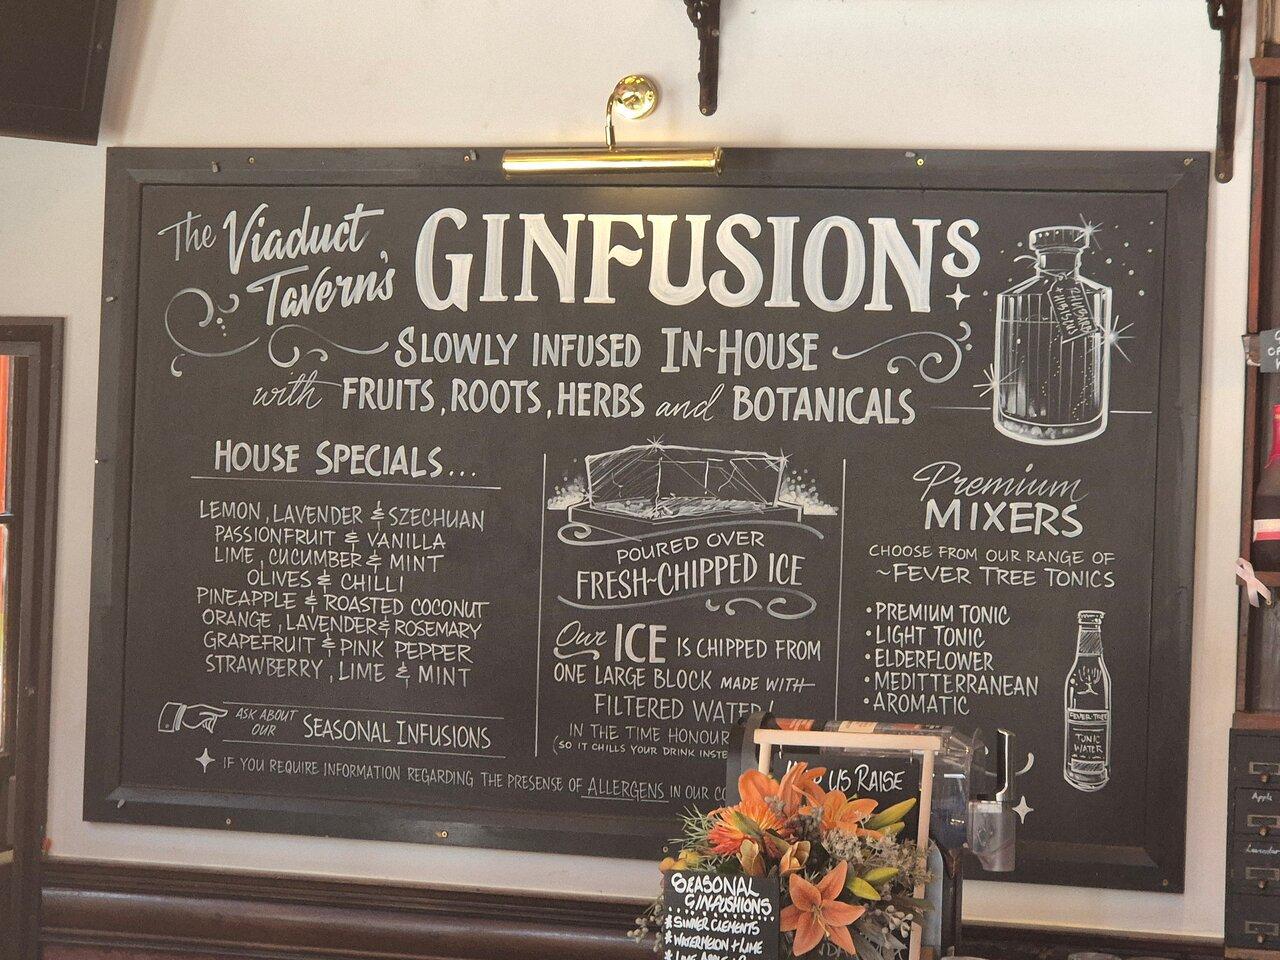 The Viaduct Tavern's GINFUSIONS
SLOWLY INFUSED IN-HOUSE
with FRUITS, ROOTS, HERBS and BOTANICALS
RHUBARB
& HIBISCUS
HOUSE SPECIALS...
LEMON, LAVENDER & SZECHUAN
PASSIONFRUIT & VANILLA
LIME, CUCUMBER & MINT
OLIVES & CHILLI
PINEAPPLE & ROASTED COCONUT
ORANGE, LAVENDER & ROSEMARY
GRAPEFRUIT & PINK PEPPER
STRAWBERRY, LIME & MINT
ASK ABOUT OUR SEASONAL INFUSIONS
POURED OVER
FRESH-CHIPPED ICE
Our ICE IS CHIPPED FROM
ONE LARGE BLOCK MADE WITH
FILTERED WATER!
IN THE TIME HONOUR
(SO IT CHILLS YOUR DRINK INSTE
Premium
MIXERS
CHOOSE FROM OUR RANGE OF
~FEVER TREE TONICS
•PREMIUM TONIC
•LIGHT TONIC
•ELDERFLOWER
•MEDITERRANEAN
•AROMATIC
FEVER-TREE
TONIC
WATER
IF YOU REQUIRE INFORMATION REGARDING THE PRESENCE OF ALLERGENS IN OUR CO
US RAISE
SEASONAL
GINFUSHIONS
*SUMMER CLEMENTS
*WATERMELON + LIME
Apple
Lavender